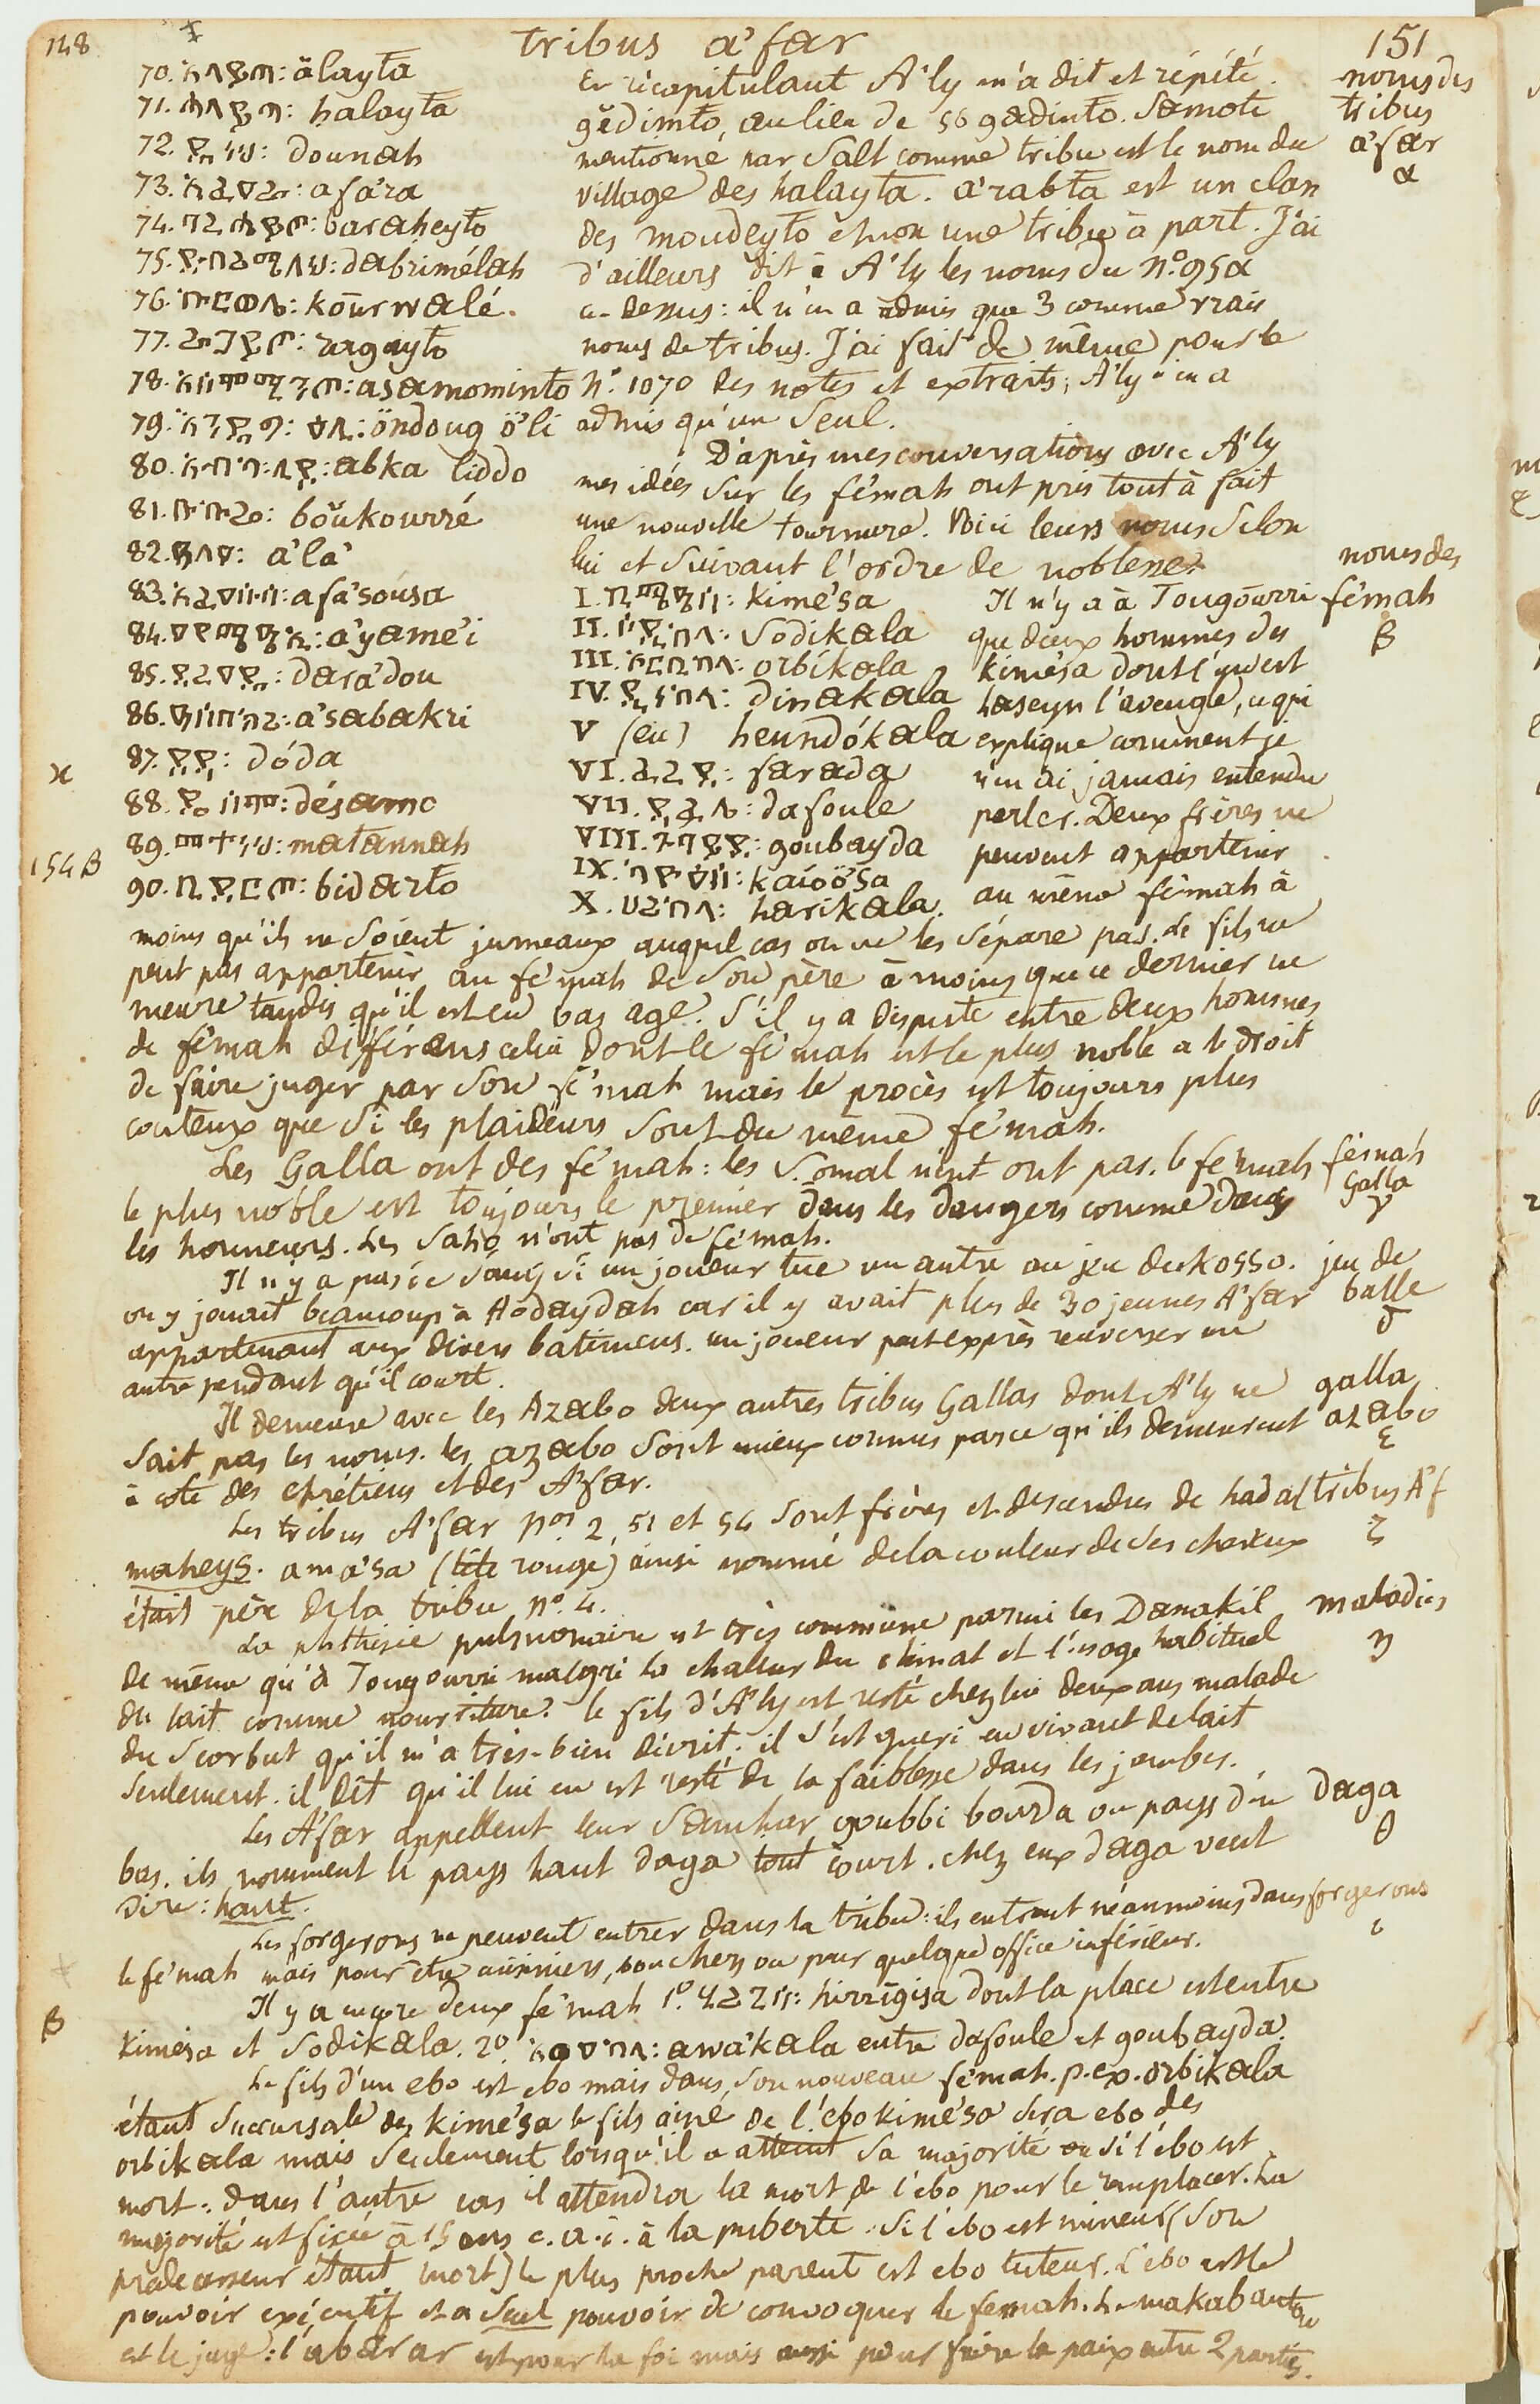 148
tribus a'far
151
70. አላይታ: älayta
71. ሐላይታ: halayta
72. ዱናህ: dounah
73. አፋዕራ: afa'ra
74. ባራሐይቶ: baraheyto
75. ደብሪሜላህ: dabrimélah
76. ኩርዋሌ: kōurwalé.
77. ረጋይቶ: ragayto
78. አሳሞሚንቶ: asamominto
79. öndoug ö'li
80. አብካ: ሊዶ: abka liddo
81. ቡኩሬ: böŭkourré
82. ዓላዕ: a'la'
83. አፋዕሱሳ: afa'sóusa
84. ዐያሜዒ: a'yame'i
85. ደራዕዱ: dara'dou
86. ዓሳባክሪ: a'sabakri
87. ዶዳ: dóda
88. ዴሳሞ: désamo
89. መታናህ: matannah
90. ቢዳርቶ: bidarto
En récapitulant A'ly m'a dit et répété
gĕdimto, au lieu de 56 gadinto. Samoti
mentionné par Salt comme tribu est le nom du
village des halayta. a'rabta est un clan
des moudeyto & non une tribu à part. J'ai
d'ailleurs dit à A'ly les noms du N.° 95α
ci-dessus: il n'en a admis que 3 comme vrais
noms de tribus. J'ai fait de même pour le
N.° 1070 des notes et extraits; A'ly n'en a
admis qu'un seul.
noms des
tribus
a'far
α
D'après mes conversations avec A'ly
mes idées sur les fe'mah ont pris tout à fait
une nouvelle tournure. Voici leurs noms selon
lui et suivant l'ordre de noblesse.
noms des
fe'mah
β
I. ኪሜዕሳ: kime'sa
II. ሶዲካላ: Sodikala
III. ኦርቢካላ: orbikala
IV. ዲናካላ: dinakala
V (eu) heundókala
VI. ፋራዳ: farada
VII. ዳፉሌ: dafoule
VIII. ጉባይዳ: goubayda
IX. kaïoö'sa
X. ሃሪካላ: harikala.
Il n'y a à Tougōurri
que deux hommes des
kime'sa dont l'un est
haseyn l'aveugle, ce qui
explique comment je
n'en ai jamais entendu
parler. Deux frères ne
peuvent appartenir
au même fe'mah à
154 β
moins qu'ils ne soient jumeaux auquel cas on ne les sépare pas. Le fils ne
peut pas appartenir au fe'mah de son père à moins que ce dernier ne
meure tandis qu'il est en bas age. S'il y a dispute entre deux hommes
de fe'mah différens celui dont le fe'mah est le plus noble a le droit
de faire juger par son fe'mah mais le procès est toujours plus
couteux que si les plaideurs sont du même fe'mah.
Les Galla ont des fe'mah: les Somal n'ent ont pas. le fe'mah
le plus noble est toujours le premier dans les dangers comme dans
les honneurs. Les Saho n'ont pas de fe'mah.
fe'mah
Galla
γ
Il n'y a pas de sang si un joueur tue un autre au jeu du kosso.
on y jouait beaucoup à Hodaydah car il y avait plus de 30 jeunes A'far
appartenant aux divers batimens. un joueur peut exprès renverser un
autre pendant qu'il court.
jeu de
balle
δ
Il demeure avec les Azabo deux autres tribus Gallas dont A'ly ne
sait pas les noms. les azabo sont mieux connus parce qu'ils demeurent
à coté des chrétiens et des A'far.
galla
azabo
ε
Les tribus A'far nos 2, 51 et 54 sont frères et descendues de hadal
maheys. ama'sa (tête rouge) ainsi nommé de la couleur de ses cheveux
était père de la tribu n°. 4.
tribus A'f
ζ
La phthisie pulmonaire est très commune parmi les Danakil
de même qu'à Tougourri malgré la chaleur du climat et l'usage habituel
du lait comme nourriture. le fils d'A'ly est resté chez lui deux ans malade
du scorbut qu'il m'a très-bien décrit. il s'est gueri en vivant de lait
seulement. il dit qu'il lui en est resté de la faiblesse dans les jambes.
maladies
η
Les A'far appellent leur Samhar goubbi bourda ou pays d'en
bas. ils nomment le pays haut daga tout court. chez eux daga veut
dire: haut.
daga
θ
Les forgerons ne peuvent entrer dans la tribu: ils entrent néanmoins dans
le fe'mah mais pour être cuisiniers, bouchers ou pour quelque office inférieur.
forgerons
ι
β
Il y a encore deux fe'mah 1°. ሂሪጊሳ: hirrīgisa dont la place est entre
kime'sa et Sodikala. 2°. አዋዕካላ: awa'kala entre dafoule et goubayda.
Le fils d'un ebo est ebo mais dans son nouveau fe'mah. p.ex. orbikala
étant succursale des kime'sa le fils ainé de l'ebo kime'sa sera ebo des
orbikala mais seulement lorsqu'il a atteint sa majorité ou si l'ebo est
mort: dans l'autre cas il attendra la mort de l'ebo pour le remplacer. La
majorité est fixée à 15 ans c.a.d. à la puberté. Si l'ebo est mineur (son
prédécesseur étant mort) le plus proche parent est ebo tuteur. L'ebo est le
pouvoir exécutif et a seul pouvoir de convoquer le femah. Le makabantou
est le juge: l'abarar est pour la foi mais aussi pour faire la paix entre 2 partis.